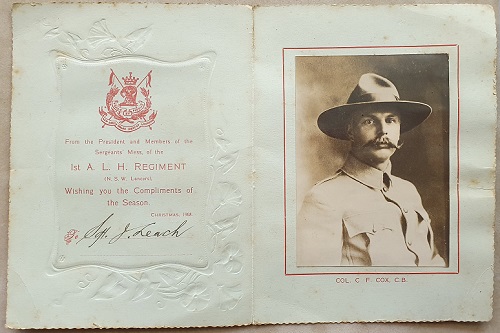 From the President and Members of the
Sergeants' Mess, of the
1st A. L. H. REGIMENT
(N. S. W. Lancers).
Wishing you the Compliments of
the Season.
CHRISTMAS,
To Sgt. J. Leach
COL. C. F. COX, C.B.